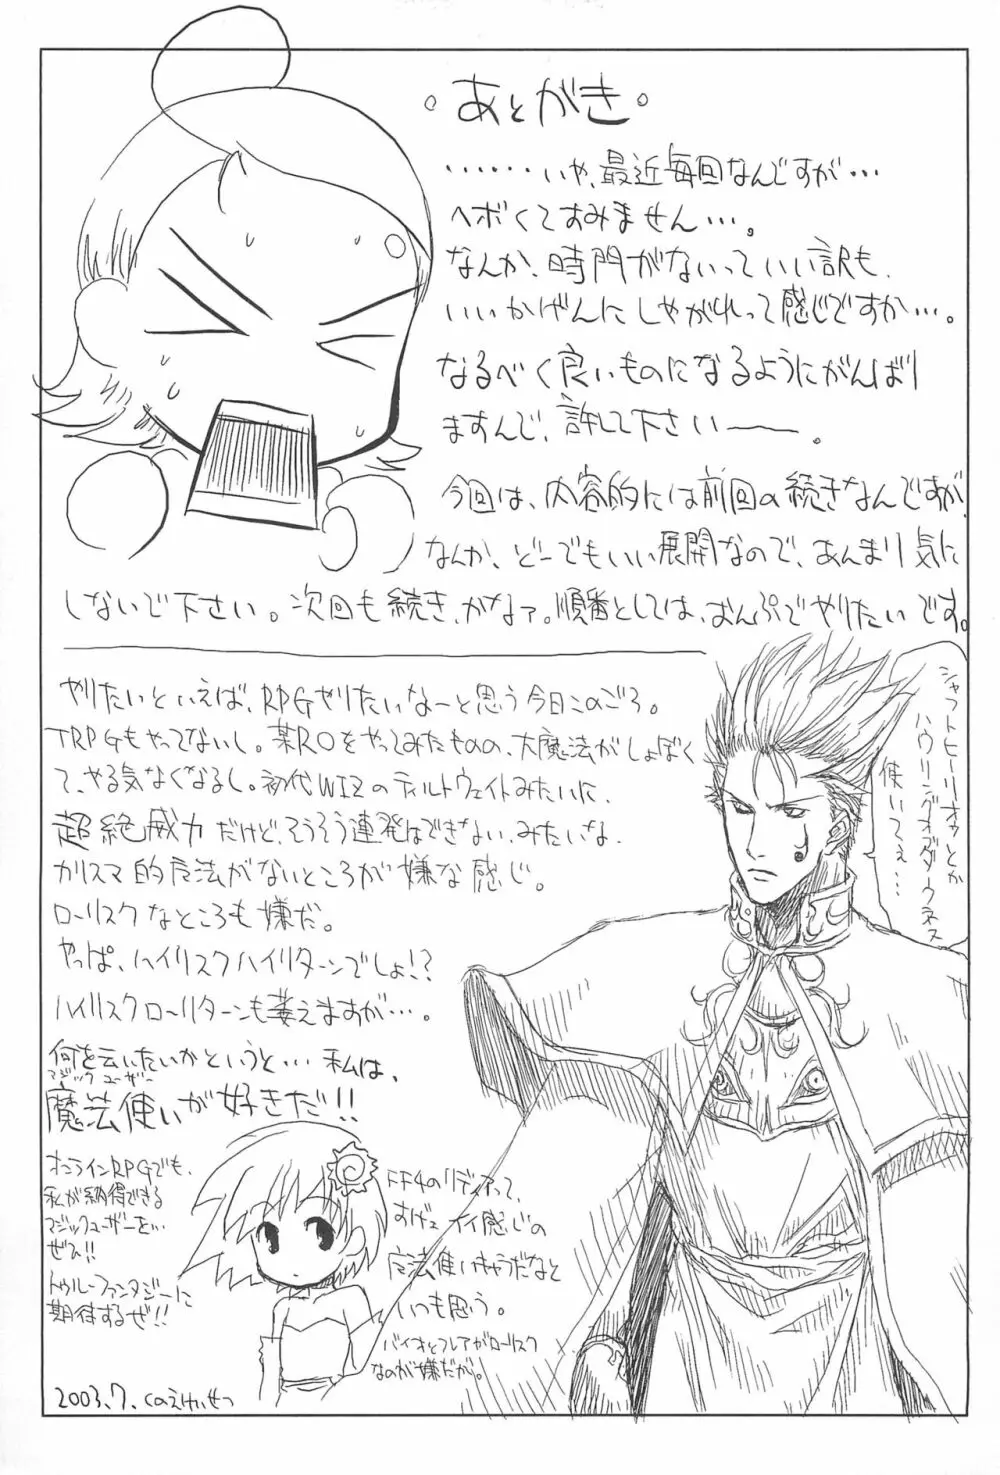 。あとがき。
……いや、最近毎回なんですが…
ヘボくてすみません…。
なんか、時間がないっていい訳も、
いいかげんにしやがれって感じですか…。
なるべく良いものになるようにがんばり
ますんで、許して下さいーー。
今回は、内容的には前回の続きなんですが、
なんか、どーでもいい展開なので、あんまり気に
しないで下さい。次回も続き、かなァ。順番としては、おんぷでやりたいです。
やりたいといえば、RPGやりたいなーと思う今日このごろ。
TRPGもやってないし。某ROをやってみたものの、大魔法がしょぼく
て、やる気なくなるし。初代WIZのティルトウェイトみたいに、
超絶威力だけど、そうそう連発はできない、みたいな
カリスマ的魔法がないところが嫌な感じ。
ローリスクなところも嫌だ。
やっぱ、ハイリスクハイリターンでしょ!?
ハイリスクローリターンも萎えますが…。
何を云いたいかというと…私は、
マジックユーザー
魔法使いが好きだ!!
オンラインRPGでも、
私が納得できる
マジックユーザーを…
ぜひ!!
トゥルーファンタジーに
期待するぜ!!
FF4のリディアって、
すげェイイ感じの
魔法使いキャラだなと
いつも思う。
バイオとフレアがローリスク
なのが嫌だが。
シャフトヒーリオゥとか
ハウリングオダーウネス
使いてぇ…
2003.7. このえけいせつ